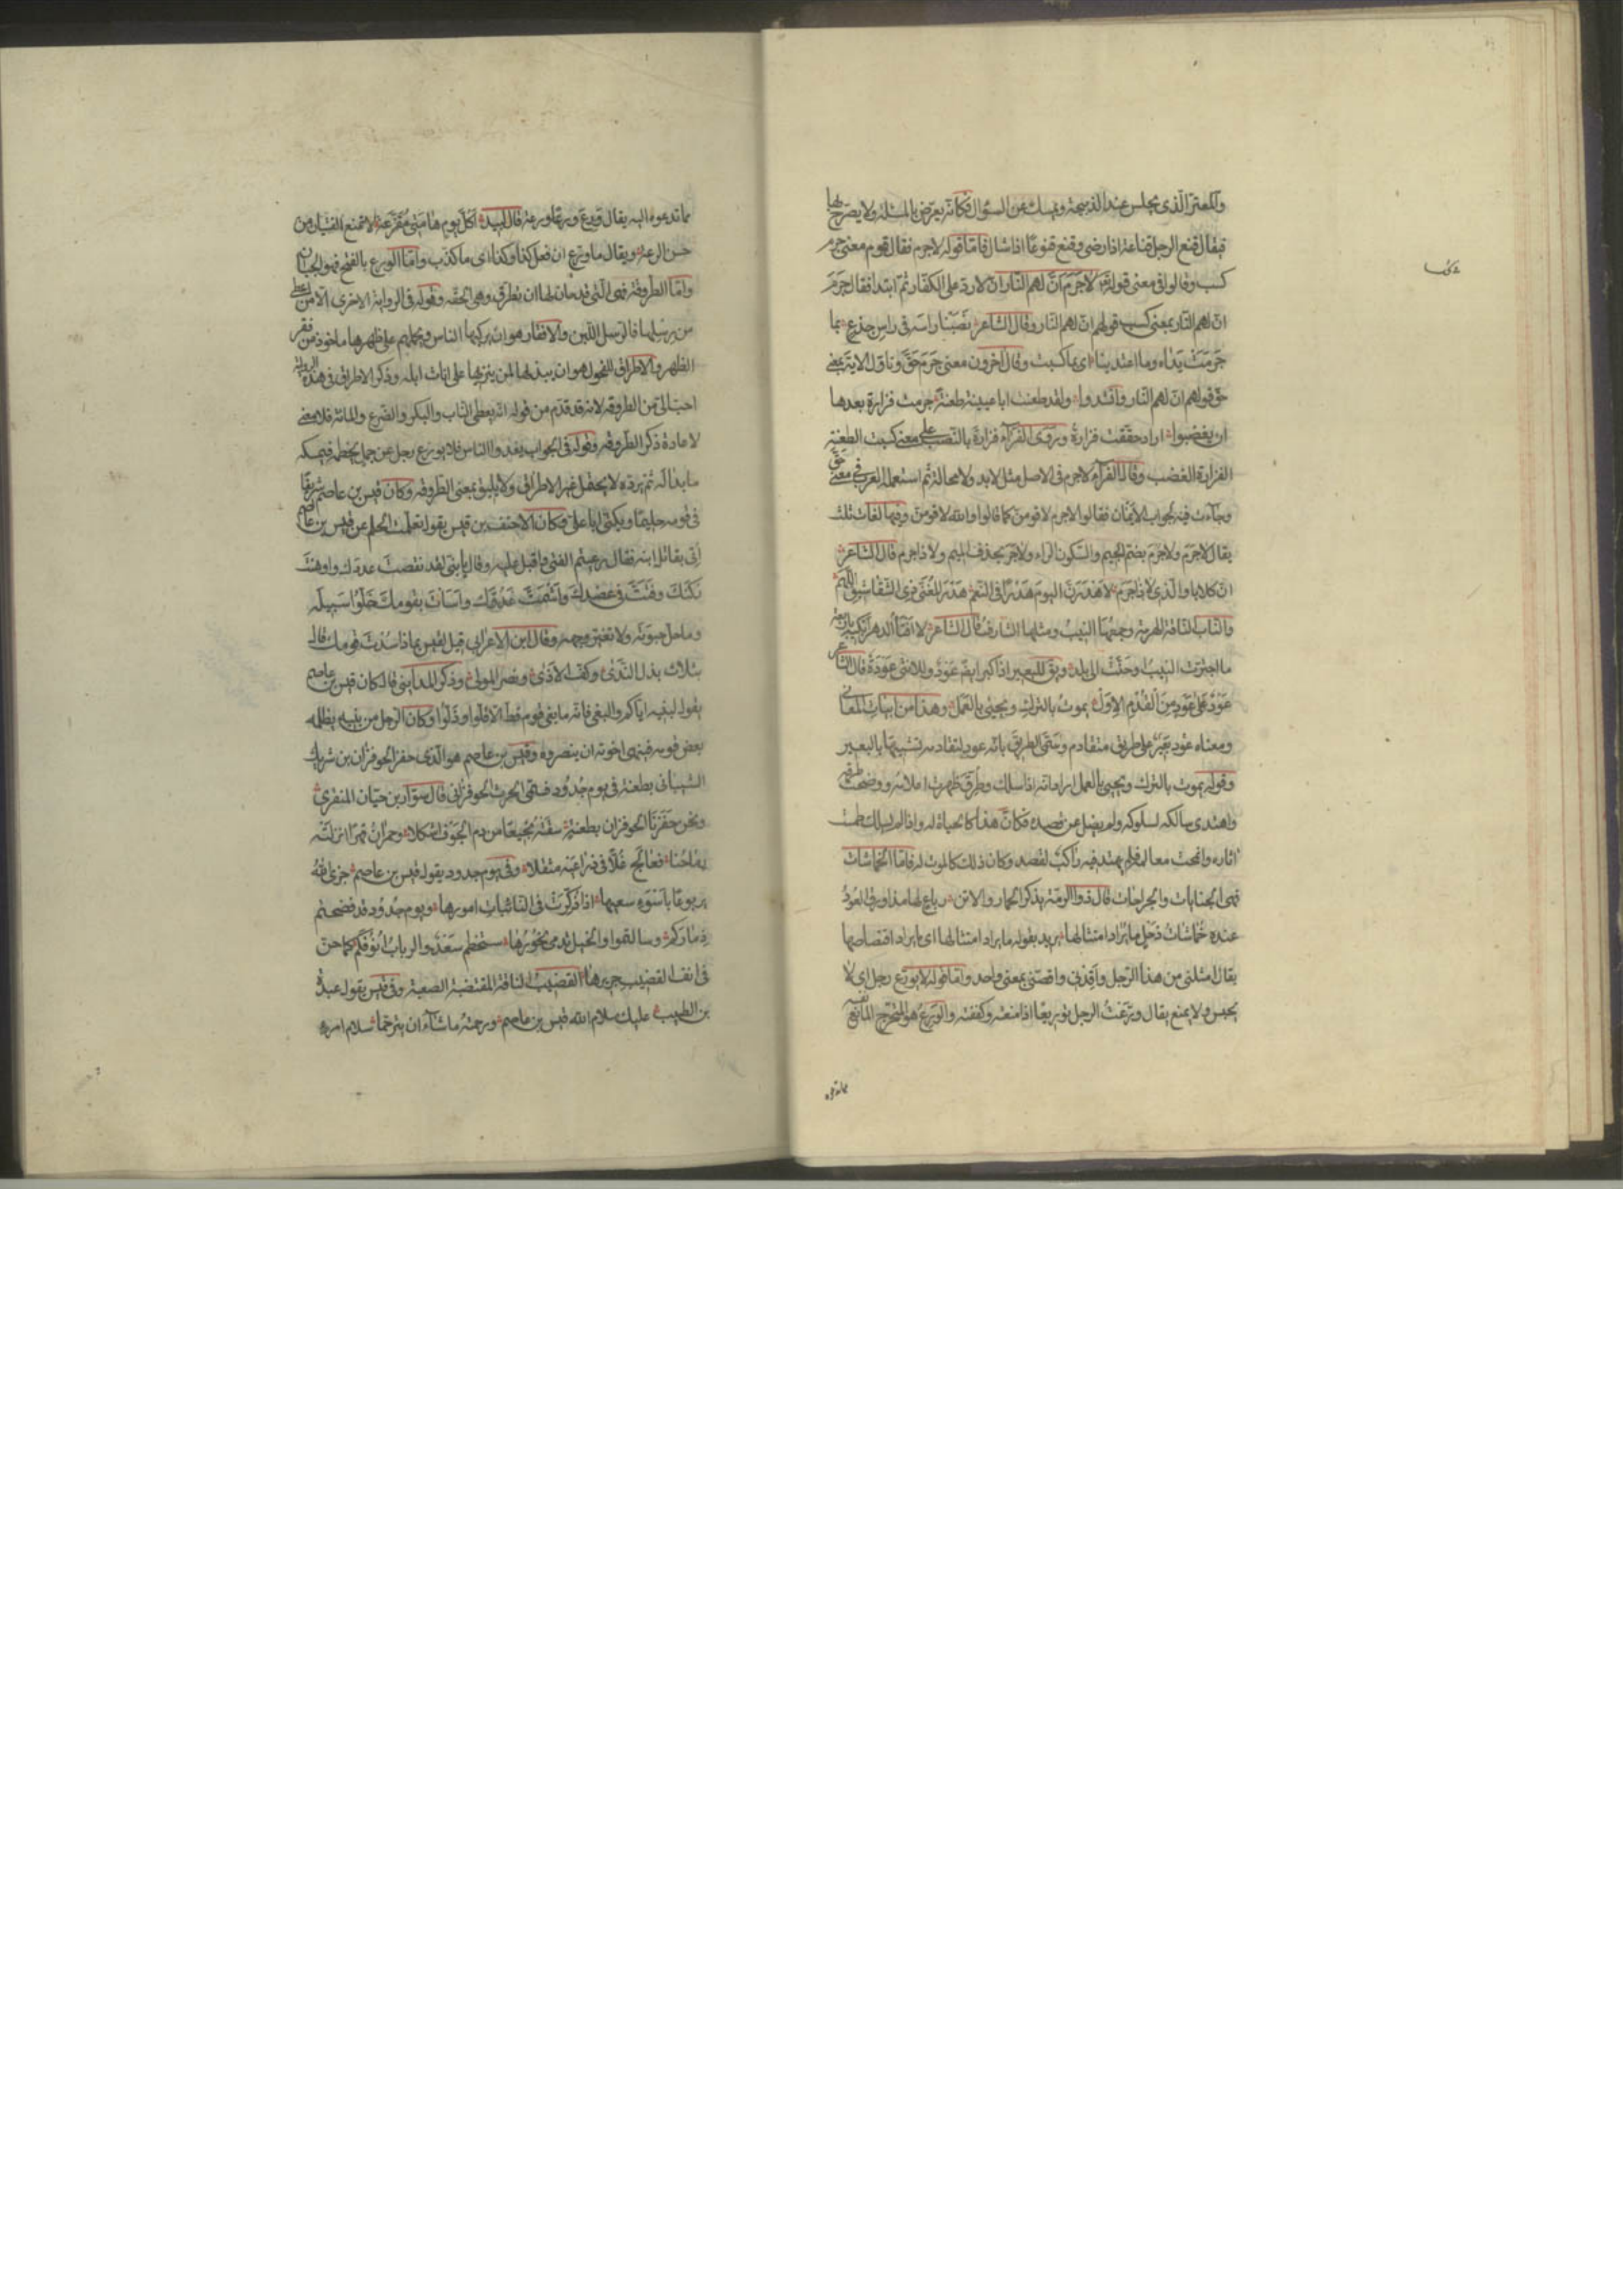 والمعتر الذى يجلس عند الذبيحة ويمسك عن السؤال فكانه يعرّض بالمسئلة ولا يصرّح بها
فيقال قنع الرجل قناعة اذا رضى وقنع قنوعًا اذا سال فامّا قوله لاجرم فقال قوم معنى جرم
كسب وقالوا فى معنى قوله لَاجَرَمَ اَنَّ لهم النّار انّ لا ردّ على الكفّار ثم ابتدا فقال جَرَمَ
انّ لهم النّار بمعنى كسب قولهم انّ لهم النّار وقال الشاعر نَصَبْنا راسه فى راس جذعٍ بما
جَرَمَتْ يَدَاه وما اعتدينا اى بما كسبت وقال آخرون معنى جَرَمَ حَقَّ وتاوّل الاية بمعنى
حقّ قولهم انّ لهم النّار وانشدوا ولقد طعنت ابا عيينة طعنة جرمت فزارة بعدها
ان يغضبوا اراد حقّقت فزارة وروى الفرّاء فزارة بالنّصب على معنى كسبت الطعنة
الفزارة الغضب وقال الفرّاء لاجرم فى الاصل مثل لابد ولا محالة ثم استعملها العرب فى معنى حَقَّ
وجاءت فيه بجواب الايمان فقالوا لاجرم لاقومنّ كما قالوا والله لاقومنّ وفيها لغات ثلث
يقال لاجَرَم ولاجُرْم بضم الجيم والسّكون الراء ولاجَرَ بحذف الميم ولا ذا جرم قال الشاعر
انّ كلابا والدى لا ذا جَرَم لاهدرنّ اليوم هَدْرًا فى النّعم هَدْرَ المُعَنّى ذى الشّقاشيق اللّهم
والنّاب النّاقة الهرمة وجمعها النِّيبُ ومثلها الشارف قال الشاعر لا افتأ الدهر ابكيهم باربعة
ما اجترّت النّيبُ او حَنَّتْ الى بلد ويق للبعير اذا كبر ايضًا عَوْدٌ وللانثى عَوْدَةٌ قال الشاعر
عَوْدٌ على عَوْدٍ من القُدُمِ الاوّل يموتُ بالترك ويحيى بالعَمَل وهذا من ابيات المعانى
ومعناه عَوْد بعير على طريق متقادم وسمّى الطريق بانّه عود لتقادمه تشبيهًا بالبعير
وقوله يموت بالترك ويحيى بالعمل اراد انّه اذا سلك وطُرِقَ ظهرت اعلامه ووضحت طرقه
واهتدى سالكه لسلوكه ولم يضل عن قصده فكانّ هذا كالحياة له واذا لم يسلك طمست
اثاره وانمحت معالمه فلم يهتد فيه راكبٌ لقصد وكان ذلك كالموت له فامّا الخُماشات
فهى الجنايات والجراحات قال ذو الرّمّة يذكر الحمار والاتن رباع لها مذ اورق العُودُ
عنده خُماشات ذَحْلٍ ما يُراد امتثالها يريد بقوله ما يراد امتثالها اى ما يراد اقتصاصها
يقال امثلنى من هذا الرّجل واَقِدْنى واقصّنى بمعنى واحد وامّا قوله لا يورّع رجل اى لا
يحبس ولا يمنع يقال ورّعتُ الرجل توريعًا اذا منعته وكففته والورِعُ هو المتحرّج المانع نفسه
مما تدعوه
مما تدعوه اليه يقال وَرِعَ وَرَعًا ورِعة قال لبيد اكلّ يوم هامتى مُقَزَّعة لا يمنع الفتيان من
حسن الرعة ويقال ما ورّع ان فعل كذا وكذا اى ما كذب وامّا الورع بالفتح فهو الجبان
وامّا الطّروقة فهى الّتى قد حان لها ان تطرق وهى الحقّه وقوله فى الرواية الاخرى الّا من اعطى
من رسلها فالرّسل اللّبن والافقار هو ان يركبها الناس ويحملهم على ظهورها ماخوذ من فقر
الظهر والاطراق للفحول هو ان يبذلها لمن ينزيها على اناث ابله وذكر الاطراق فى هذه الرواية
احبّ الىّ من الطروقه لانه قد تقدّم من قوله انّه يعطى النّاب والبكر والضّرع والمائة فلا معنى
لاعادة ذكر الطروقه وقوله فى الجواب يغدوا الناس فلا يورع رجل عن جمل يخطمه فيمسكه
ما بدا له ثم يردّه لا يحتمل غير الاطراق ولا يليق بمعنى الطروقه وكان قيس بن عاصم شريفًا
فى قومه حليمًا ويكنى ابا على وكان الاحنف بن قيس يقول تعلّمت الحلم عن قيس بن عاصم
أُتى بقاتل ابنه فقال رعبتم الفتى واقبل عليه وقال يا بنىّ لقد نقصتَ عددك واوهنت
ركنك وفَتَتَّ فى عضدك واَشْمَتَّ عدوّك واسأت بقومك خَلّوا سبيله
وما حلّ حبوته ولا تغيّر وجهه وقال ابن الاعرابى قيل لقيس بماذا سُدْتَ قومك قال
بثلاث بذل النّدى وكفّ الاذى ونصر المولى وذكر المداينى قال كان قيس بن عاصم
يقول لبنيه ايّاكم والبغى فانّه ما بغى قوم قطّ الّا قلّوا وذلّوا وكان الرجل من بنيه يظلمه
بعض قومه فينهى اخوته ان ينصروه وقيس بن عاصم هو الّذى حفز الحوفزان بن شريك
الشيبانى بطعنة فى يوم جُدُود فسمّى الحرث الحوفزان قال سوّار بن حيّان المنقرى
ونحن حَفَزْنا الحوفزان بطعنة سقته نجيعًا من دم الجوف اشكلا وحمرانُ قسرًا انزلته
رماحُنا فعالج غُلّا فى ذراعيه مثقلا وفى يوم جدود يقول قيس بن عاصم جزى اللهُ
يربوعًا باسوء سعيها اذا ذُكِرَتْ فى النّائبات امورها ويوم جُدُود قد فضحتم
ذماركم وسالمتموا والخيل تدمى نحورُها ستخطم سَعْدٌ والرباب انوفكم كما حزّ
فى انف القضيب جريرها القضيب النّاقة المقتضبة الصعبة وفى قيس يقول عبدة
بن الطبيب عليك سلام الله قيس بن عاصم ورحمته ما شاء ان يترحّما سلام امرء